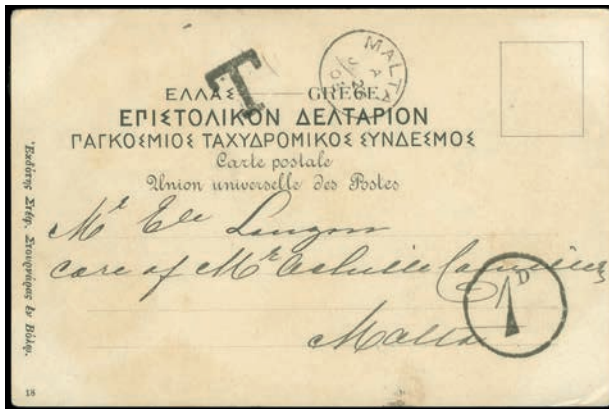 T
MALTA
ΕΛΛΑΣ — GRÈCE
ΕΠΙΣΤΟΛΙΚΟΝ ΔΕΛΤΑΡΙΟΝ
ΠΑΓΚΟΣΜΙΟΣ ΤΑΧΥΔΡΟΜΙΚΟΣ ΣΥΝΔΕΣΜΟΣ
Carte postale
Union universelle des Postes
Mr
care of Mr
Malta
1D
Ἐκδότης Στέφ. Στουρνάρας ἐν Βόλῳ.
18